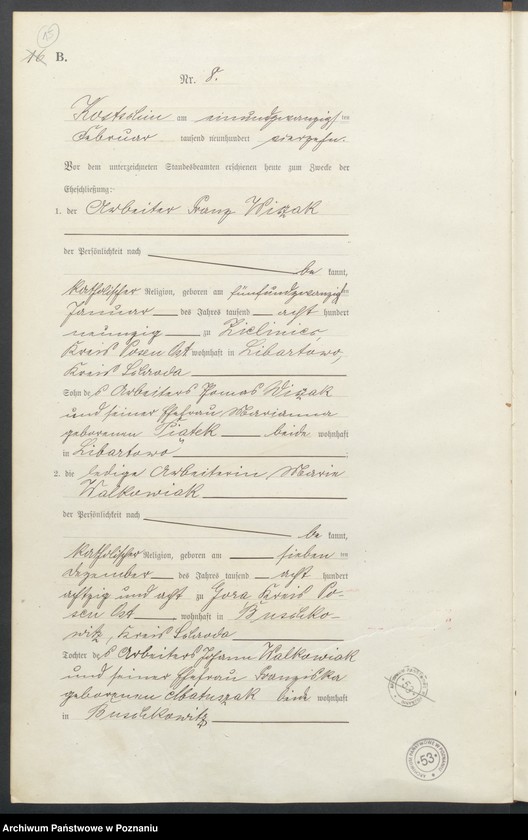 15
16 B.
Nr. 8.
Kostschin am einundzwanzigsten
Februar tausend neunhundert vierzehn.
Vor dem unterzeichneten Standesbeamten erschienen heute zum Zwecke der
Eheschließung:
1. der Arbeiter Franz Wizak
der Persönlichkeit nach
be kannt,
katholischer Religion, geboren am fünfundzwanzigsten
Januar des Jahres tausend acht hundert
neunzig zu
Kreis Posen Ost wohnhaft in Libartowo,
Kreis Schroda
Sohn des Arbeiters Thomas Wizak
und seiner Ehefrau Marianna
geborenen Piątek beide wohnhaft
in Libartowo
2. die ledige Arbeiterin Marie
Walkowiak
der Persönlichkeit nach
be kannt,
katholischer Religion, geboren am sieben ten
Dezember des Jahres tausend acht hundert
achtzig und acht zu Gora Kreis Po-
sen Ost wohnhaft in Buschko-
witz, Kreis Schroda
Tochter des Arbeiters Johann Walkowiak
und seiner Ehefrau Franziska
geborenen beide wohnhaft
in Buschkowitz
53
ARCHIWUM PAŃSTWOWE W POZNANIU
53
Archiwum Państwowe w Poznaniu